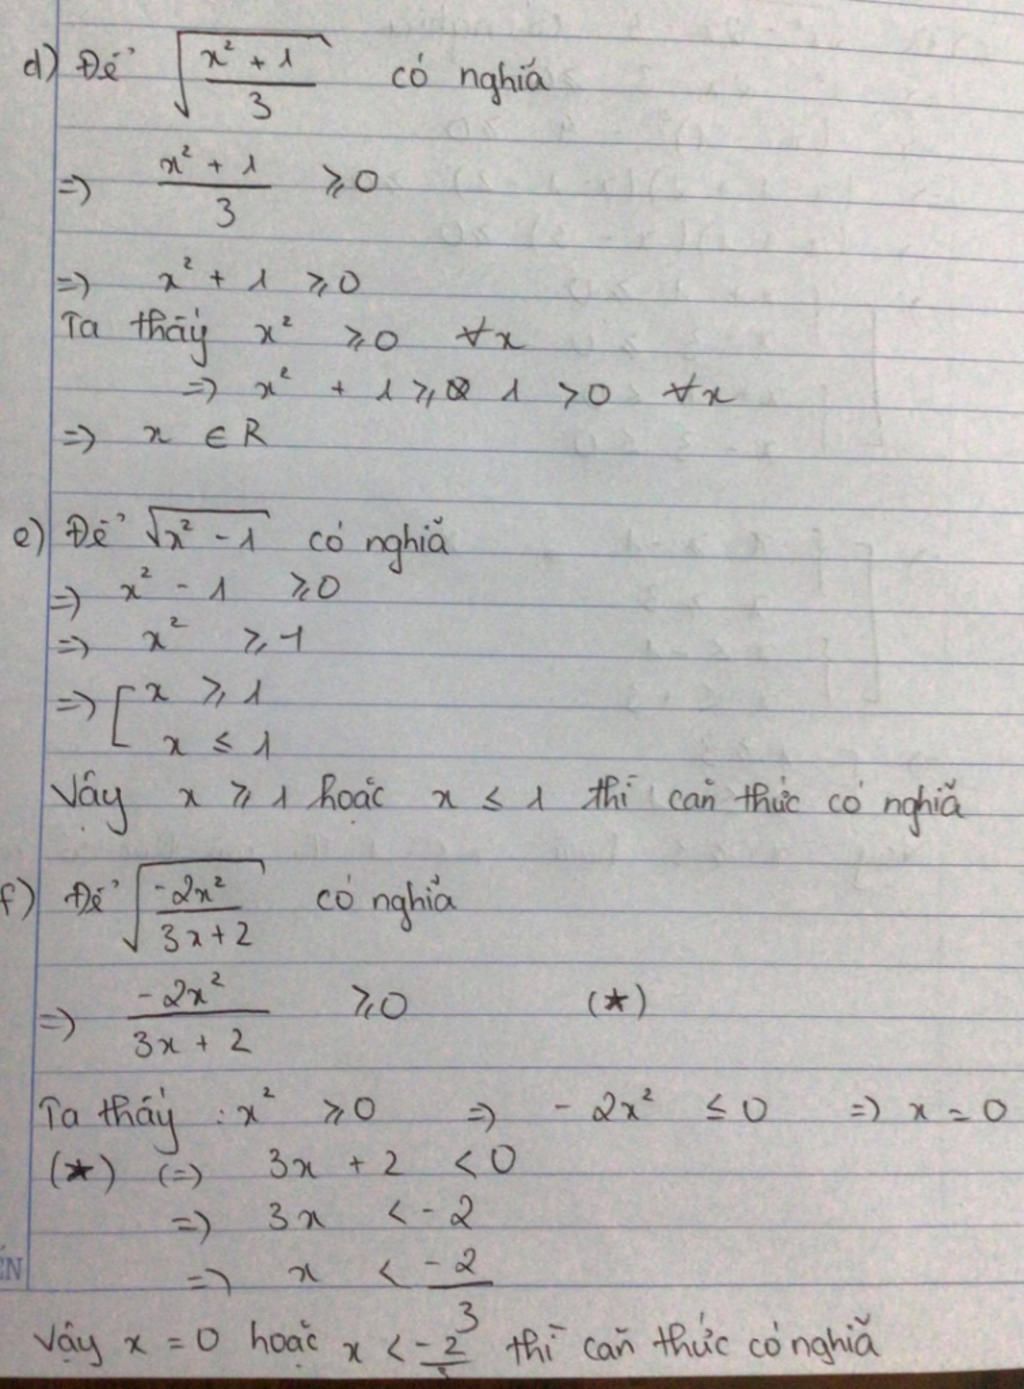 d) Để √((x² + 1)/3) có nghĩã
=> (x² + 1)/3 ≥ 0
=> x² + 1 ≥ 0
Ta thấy x² ≥ 0 ∀x
=> x² + 1 ≥ 1 > 0 ∀x
=> x ∈ R
e) Để √(x² - 1) có nghĩã
=> x² - 1 ≥ 0
=> x² ≥ 1
=> [ x ≥ 1
x ≤ 1
Vậy x ≥ 1 hoặc x ≤ 1 thì căn thức có nghĩã
f) Để √(-2x²/(3x+2)) có nghĩa
=> -2x²/(3x + 2) ≥ 0 (*)
Ta thấy : x² ≥ 0 => - 2x² ≤ 0 => x = 0
(*) (=) 3x + 2 < 0
=> 3x < - 2
=> x < -2/3
Vậy x = 0 hoặc x < -2/3 thì căn thức có nghĩã